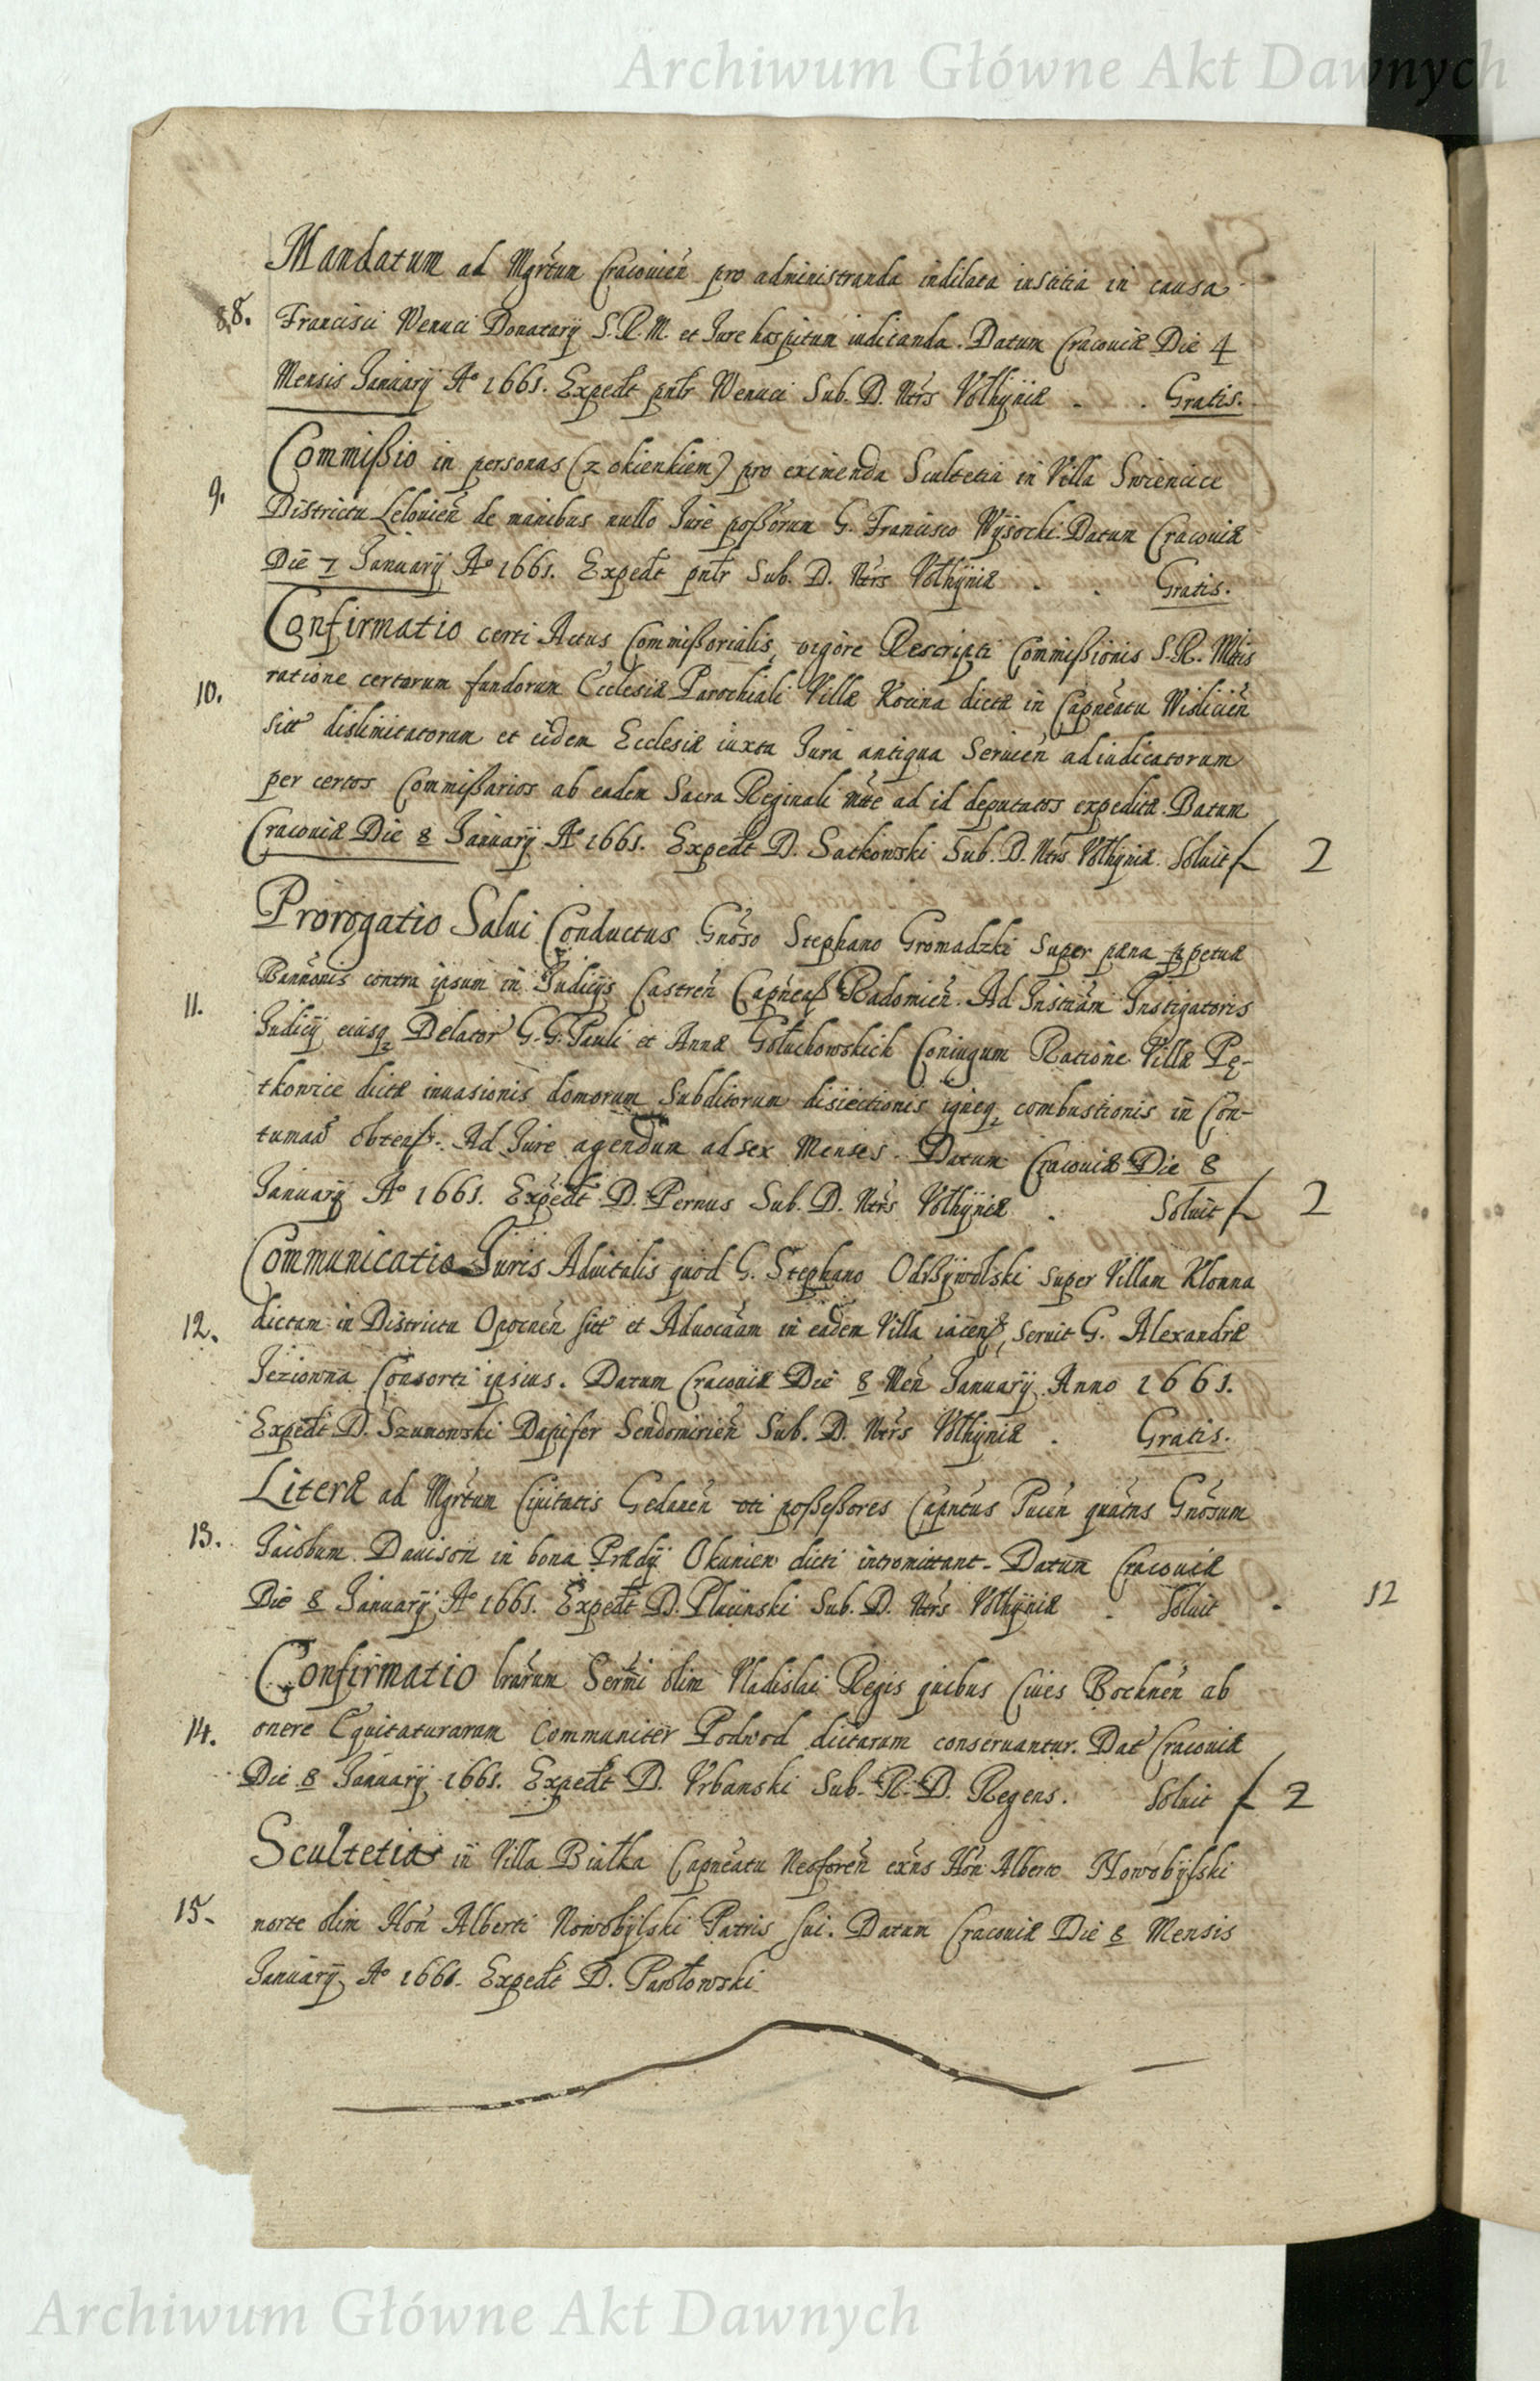 Archiwum Główne Akt Dawnych
Mandatum ad Mgrtum Cracouien pro administranda indilata iustitia in causa
88. Francisci Wenuci Donatarÿ S.R.M. et Jure hospitum iudicanda. Datum Cracouiæ Die 4
Mensis Januarÿ Aº 1661. Expedt pntr Wenuci Sub. D. Ntrs Volhÿniæ . . Gratis.
Commißio in personas (z okienkiem) pro eximenda Scultetia in Villa Swiencice
9. Districtu Leloуien de manibus nullo Jure poßorum G. Francisco Wÿsocki. Datum Cracouiæ
Die 7 Januarÿ Aº 1661. Expedt pntr Sub. D. Ntrs Volhÿniæ . . Gratis.
Confirmatio certi Actus Commißorialis, vigore Rescripti Commißionis S.R. Mttis
10. ratione certorum fundorum Ecclesiæ Parochiali Villæ Kocina dictæ in Capneatu Wisliciën
sitt dislimitatorum et eidem Ecclesiæ iuxta Jura antiqua Seruien adiudicatorum
per certos Commißarios ab eadem Sacra Reginali Mtte ad id deputatos expeditæ. Datum
Cracouiæ Die 8 Januarÿ Aº 1661. Expedt D. Satkowski Sub. D. Ntrs Volhÿniæ. Soluit f 2
Prorogatio Salui Conductus Gnoso Stephano Gromadzki super pæna ppetuæ
Bannonis contra ipsum in Judicÿs Castren Capneaß Radomien. Ad Instnam Instigatoris
11. Judicÿ eiusq Delator G.G. Pauli et Annæ Gołuchowskich Coniugum Ratione Villæ Pę-
tkowice dictæ inuasionis domorum Subditorum disiectionis igneq combustionis in Con-
tumaō obtenß. Ad Jure agendum ad sex Menses. Datum Cracouiæ Die 8
Januarÿ Aº 1661. Expedt D. Pernus Sub. D. Ntrs Volhÿniæ . Soluit f 2
Communicatio Juris Aduitalis quod G. Stephano Odrzÿwolski super Villam Klonna
12. dictam in Districtu Opocnen sitt et Aduocaam in eadem Villa iacenß, seruit G. Alexandræ
Jeziowna Consorti ipsius. Datum Cracouiæ Die 8 Men Januarÿ Anno 1661.
Expedt D. Szumowski Dapifer Sendomirien Sub. D. Ntrs Volhÿniæ . Gratis.
Literæ ad Mgrtum Ciuitatis Gedanen vti poßeßores Capneus Pucen quatns Gnosum
13. Jacobum Dauison in bona Prædÿ Okuniew dicti intromittant. Datum Cracouiæ
Die 8 Januarÿ Aº 1661. Expedt D. Placinski Sub. D. Ntrs Volhÿniæ . Soluit . 12
Confirmatio lrarum Sermi olim Vladislai Regis quibus Ciues Bochnen ab
14. onere Equitaturarum communiter Podwod dictarum conseruantur. Dat Cracouiæ
Die 8 Januarÿ 1661. Expedt D. Vrbanski Sub. R. D. Regens. Soluit f 2
Scultetia in Villa Białka Capneatu Neoforen exns Hon Alberto Nowobÿlski
15. morte olim Hon Alberti Nowobÿlski Patris sui. Datum Cracouiæ Die 8 Mensis
Januarÿ Aº 1661. Expedt D. Pawłowski
Archiwum Główne Akt Dawnych